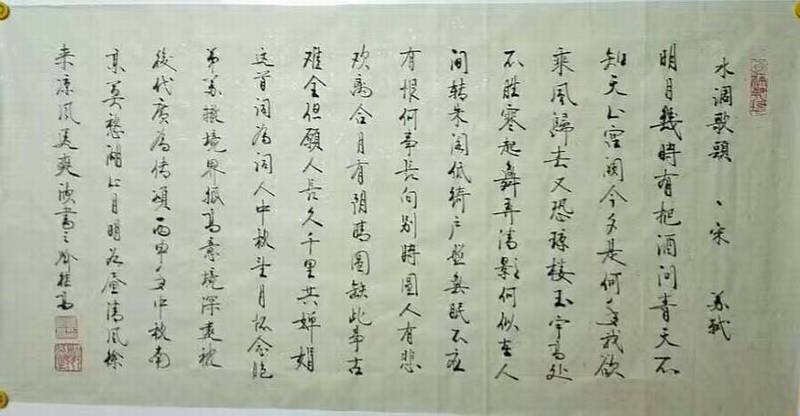 水调歌頭 丶宋 苏轼
明月幾時有把酒问青天不
知天上宫阙今夕是何年我欲
乘风歸去又恐琼楼玉宇高处
不胜寒起舞弄清影何似在人
间转朱阁低绮户照無眠不应
有恨何事长向别時圆人有悲
欢离合月有阴晴圆缺此事古
难全但願人长久千里共婵娟
这首词为词人中秋望月怀念胞
弟苏辙境界孤高意境深 被
後代廣为传颂丙申年中秋南
京莫愁湖上月明如昼清风徐
来凉风送爽 書之